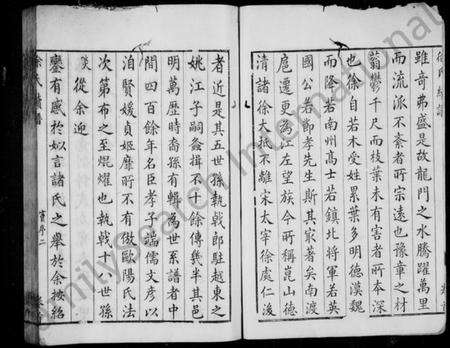 徐氏宗譜
雖奇弗盛是故龍門之水騰躍萬里
而流派不紊者所宗遠也豫章之材
蓊鬱千尺而枝葉未有害者所本深
也徐自若木受姓累葉多明德漢魏
而降若南州高士若鎮北將軍若英
國公若節孝先生斯其最者矣南渡
扈遷更為江左望族今所稱崑山德
清諸徐大抵不離宋太宰徐處仁後
者近是其五世孫執戟郎駐越東之
姚江子嗣蕃揖不十餘傳幾半其邑
明萬歷時裔孫有輯為世系譜者中
間四百餘年名臣孝子端儒文彥以
洎賢媛貞姬靡所不有倣歐陽氏法
次第布之至焜燿也執戟十八世孫
從余迎
鑾有感於如言諸氏之舉於余按紹
familysearch International